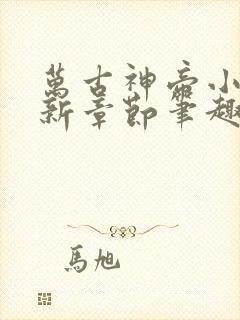 萬古神帝小
新章節筆趣
馬旭